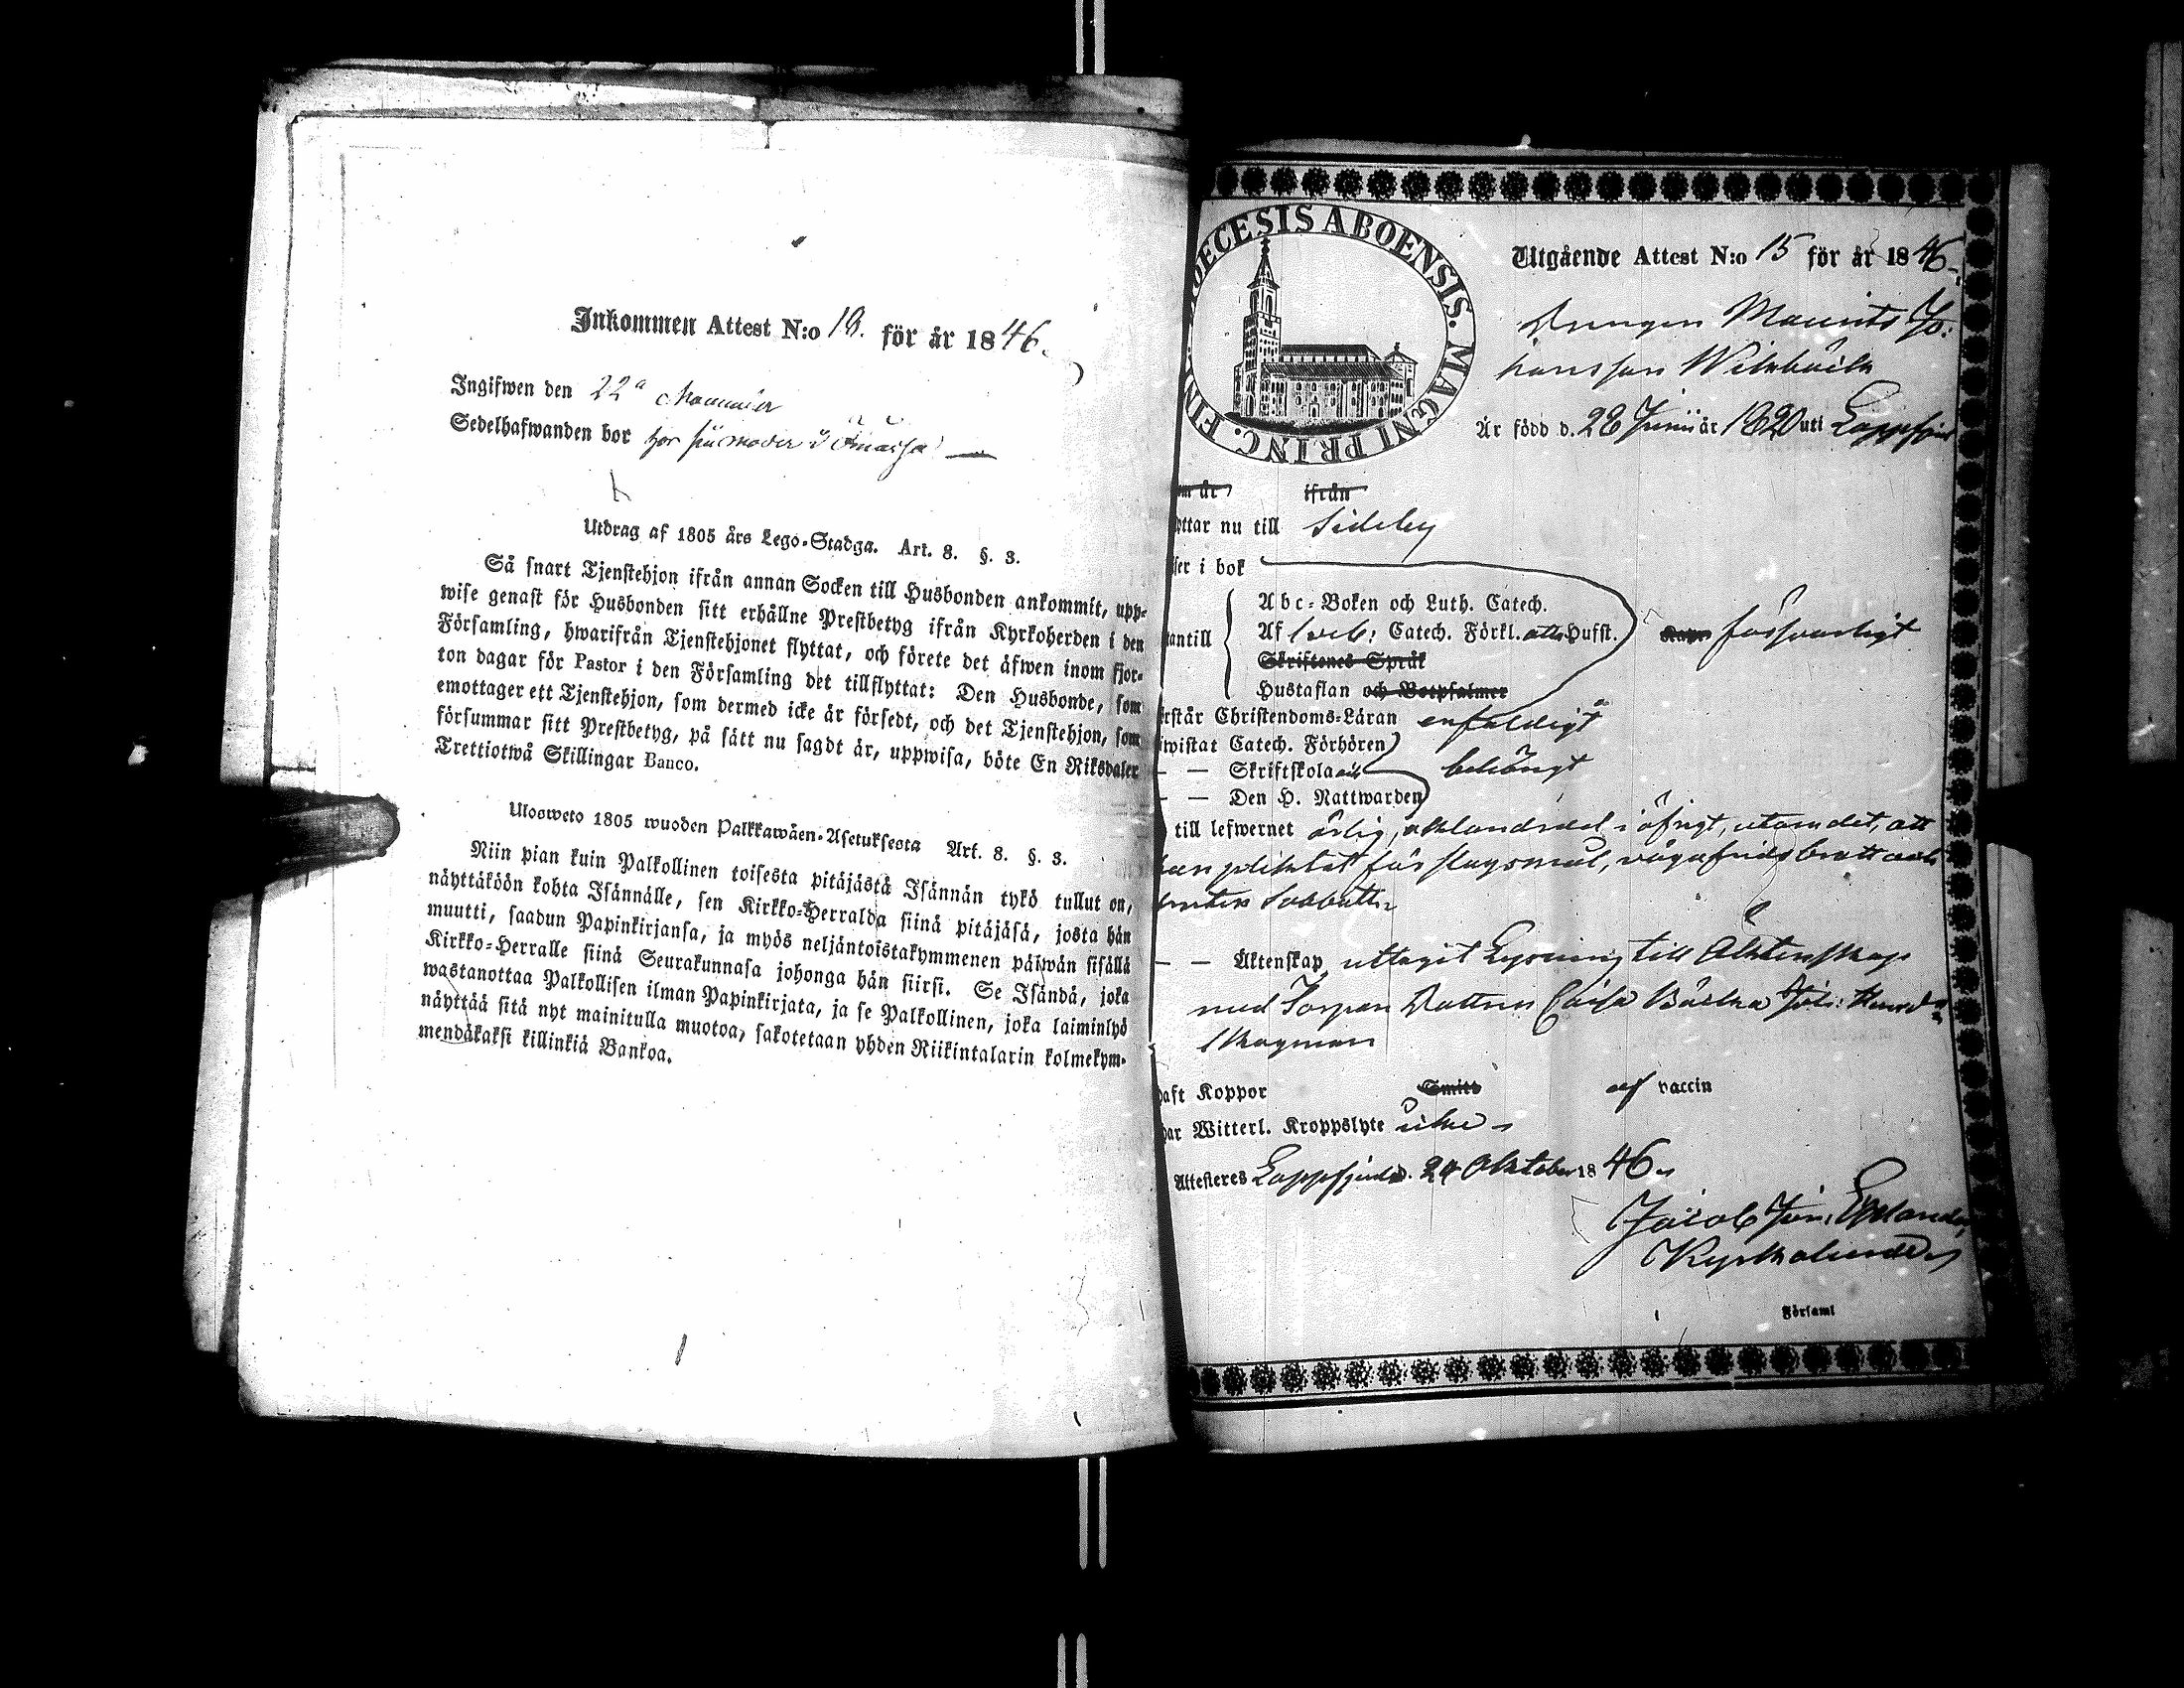 Inkommen Attest N:o 18. för år 1846.
Ingifwen den 22a
Sedelhafwanden bor hos
Utdrag af 1805 års Lego-Stadga. Art. 8. §. 3.
Så snart Tjenstehjon ifrån annan Socken till Husbonden ankommit, upp-
wise genast för Husbonden sitt erhållne Prestbetyg ifrån Kyrkoherden i den
Församling, hwarifrån Tjenstehjonet flyttat, och förete det äfwen inom fjor-
ton dagar för Pastor i den Församling det tillflyttat: Den Husbonde, som
emottager ett Tjenstehjon, som dermed icke är försedt, och det Tjenstehjon, som
försummar sitt Prestbetyg, på sätt nu sagdt är, uppwisa, böte En Riksdaler
Trettiotwå Skillingar Banco.
Ulosweto 1805 wuoden Palkkawäen-Asetuksesta Art. 8. §. 3.
Niin pian kuin Palkollinen toisesta pitäjästä Isännän tykö tullut on,
näyttäköön kohta Isännälle, sen Kirkko-Herralda siinä pitäjäsä, josta hän
muutti, saadun Papinkirjansa, ja myös neljäntoistakymmenen päiwän sisällä
Kirkko-Herralle siinä Seurakunnasa johonga hän siirsi. Se Isändä, joka
wastanottaa Palkollisen ilman Papinkirjata, ja se Palkollinen, joka laiminlyö
näyttää sitä nyt mainitulla muotoa, sakotetaan yhden Riikintalarin kolmekym-
mendäkaksi killinkiä Bankoa.
DIOECESIS ABOENSIS. MAGNI PRINC. FIN
Utgående Attest N:o 15 för år 1846.
Drengen Maurits Jo:
hansson Wikbäck
Är född d. 28 Junii år 1820 uti Lappfjerd
om år ifrån
yttar nu till Sideby
ser i bok
Abc-Boken och Luth. Catech.
antill Af Sveb: Catech. Förkl. Husst. försvarligt
Skriftenes Språk
Hustaflan och Botpsalmer
rstår Christendoms-Läran enfaldigt
iwistat Catech. Förhören
— — Skriftskola behörigt
— — Den H. Nattwarden
till lefwernet ärlig, oklandrad i öfrigt, utom det, att
han pliktat för slagsmål, vägafridsbrott och
Sabbatts
— — Äktenskap uttagit Lysning till Äktenskap
med Torpare Dottren Caisa Brita Joh: Hansdr
Skogman
haft Koppor Smitt af vaccin
har Witterl. Kroppslyte icke
Attesteres Lappfjerd d. 24 Oktober 1846.
Jacob Joh. Estlander
Kyrkoherde
Församl